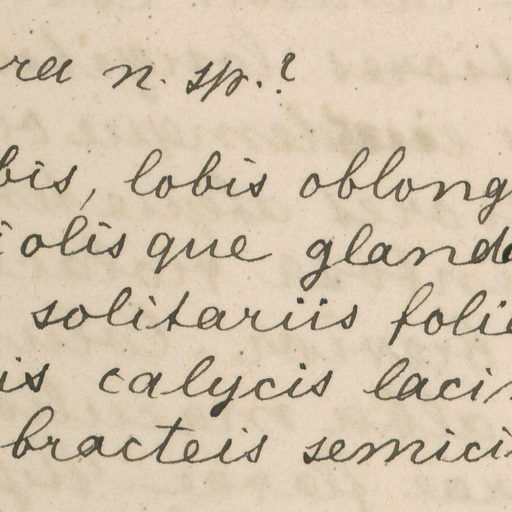 ra n. sp.?
bis, lobis oblong
iolisque gland
solitariis folie
is calycis laci
bracteis semici